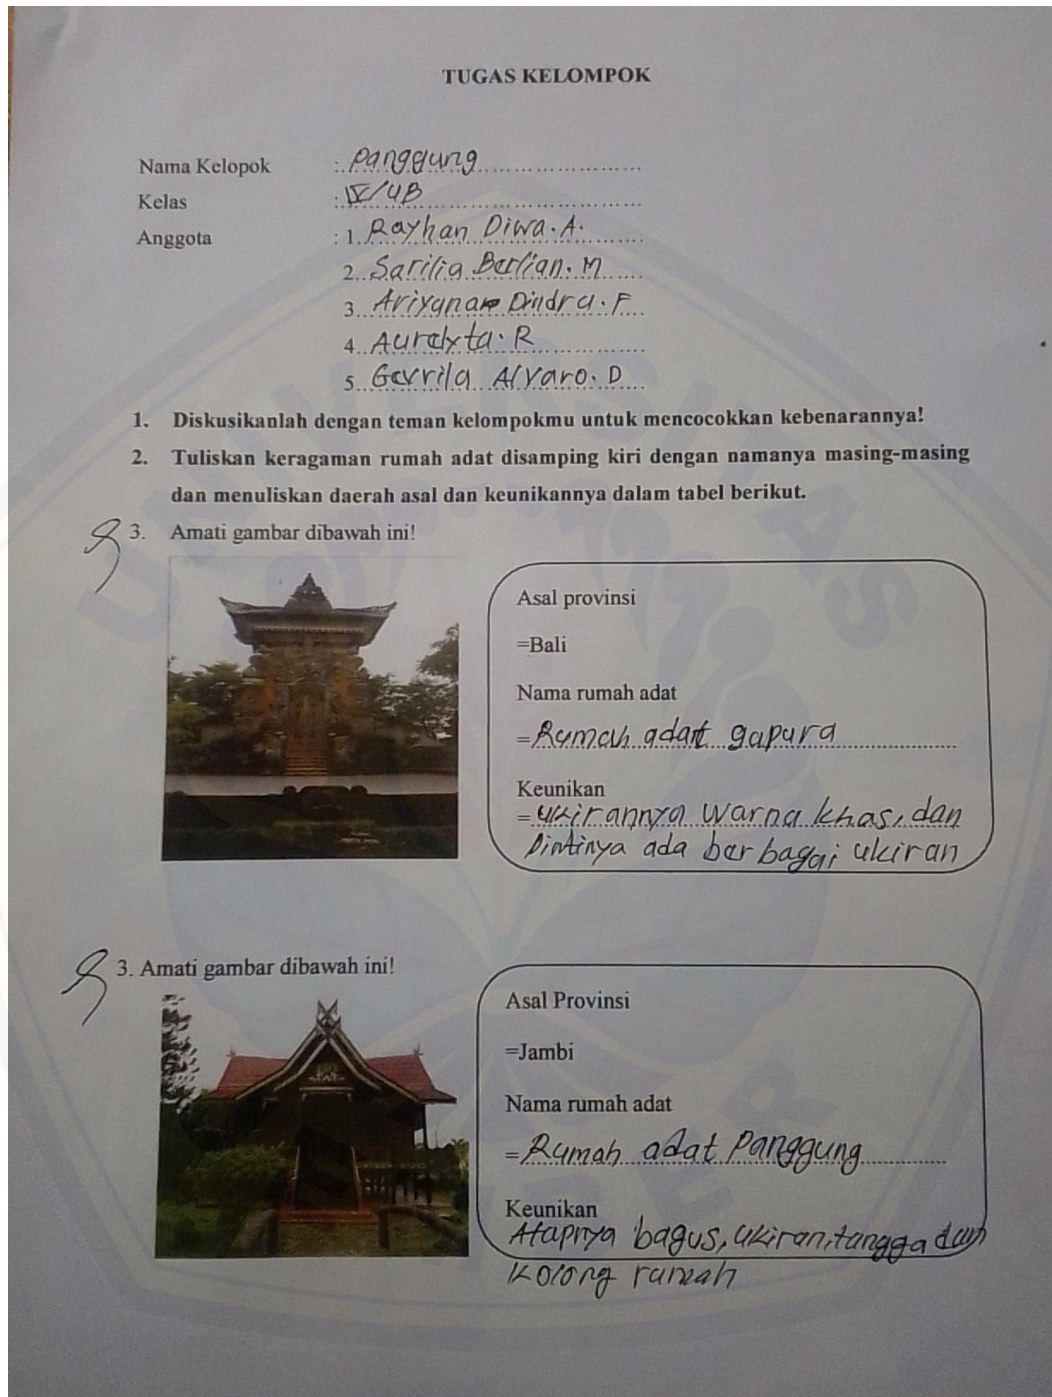 TUGAS KELOMPOK
Nama Kelopok : Panggung
Kelas : IV/4B
Anggota : 1. Rayhan Diwa. A.
2. Sarilia Berlian. M
3. Dindra. F
4. R
5. Alvaro. D
1. Diskusikanlah dengan teman kelompokmu untuk mencocokkan kebenarannya!
2. Tuliskan keragaman rumah adat disamping kiri dengan namanya masing-masing
dan menuliskan daerah asal dan keunikannya dalam tabel berikut.
3. Amati gambar dibawah ini!
Asal provinsi
=Bali
Nama rumah adat
= Rumah adat gapura
Keunikan
= ukirannya warna khas, dan
Pintinya ada berbagai ukiran
3. Amati gambar dibawah ini!
Asal Provinsi
=Jambi
Nama rumah adat
= Rumah adat Panggung
Keunikan
Atapnya bagus, ukiran, tangga dan
kolong rumah
UNIVERSITAS
JEMBER